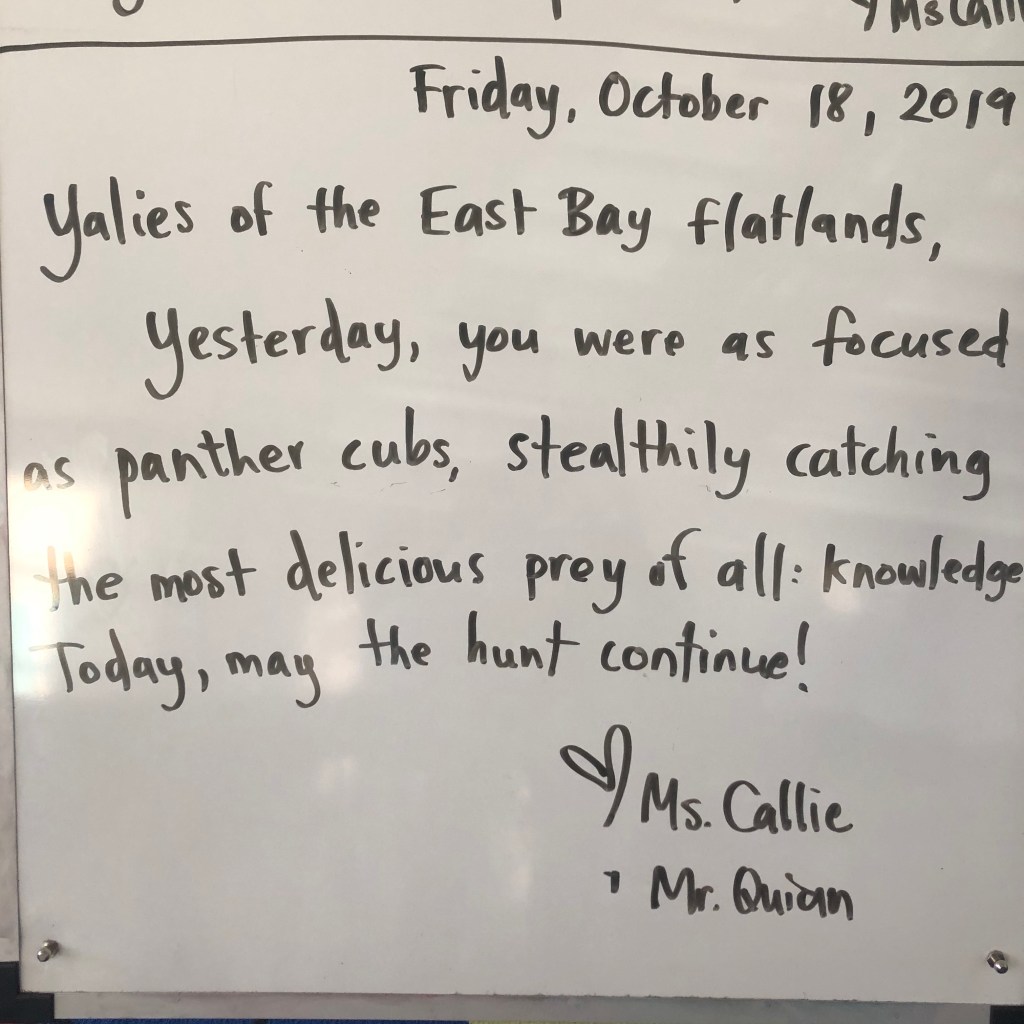 Ms Call
Friday, October 18, 2019
Yalies of the East Bay flatlands,
Yesterday, you were as focused
as panther cubs, stealthily catching
the most delicious prey of all: knowledge
Today, may the hunt continue!
Ms. Callie
Mr. Quian